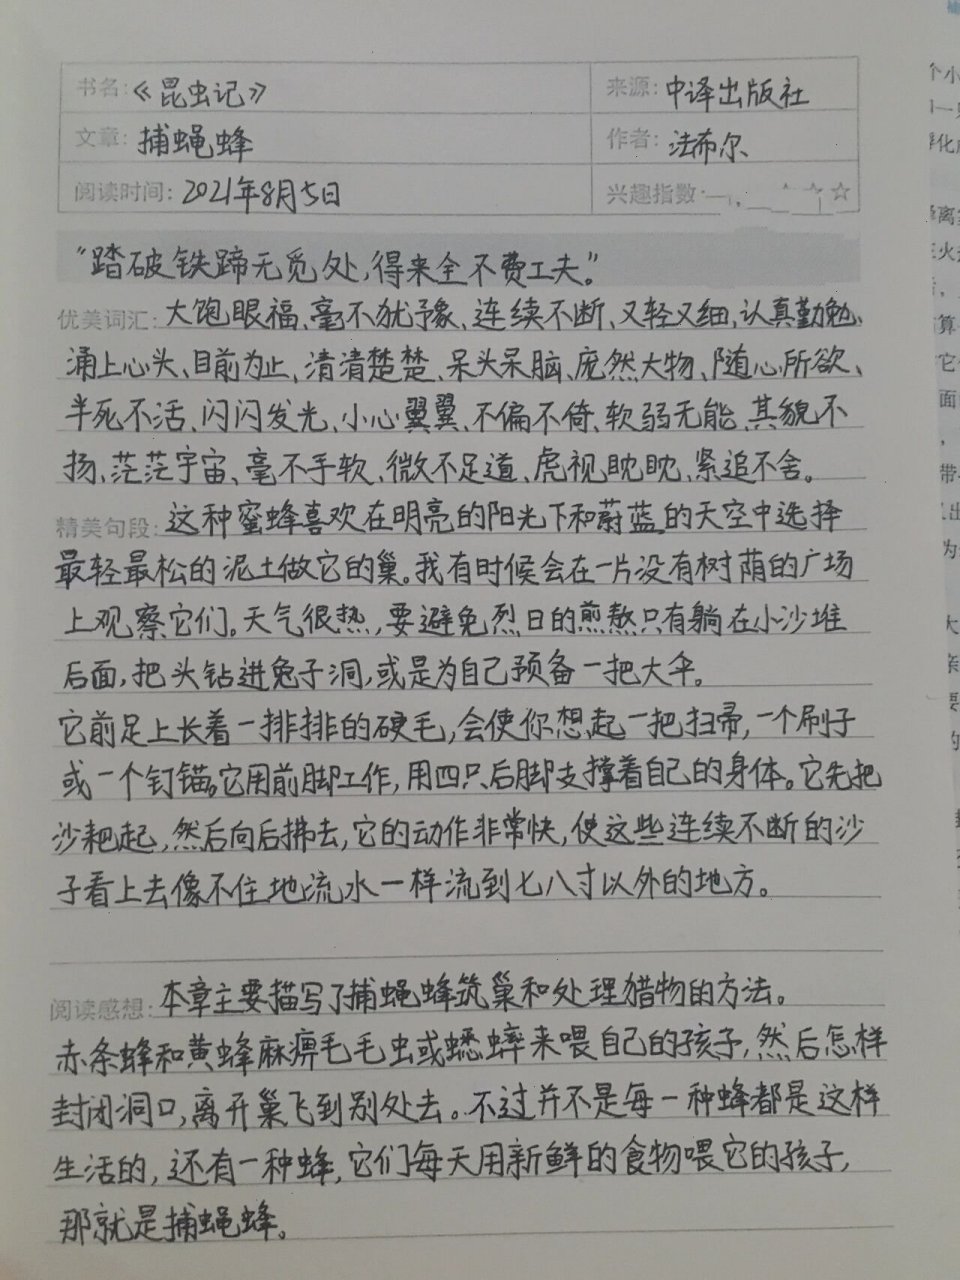 书名:《昆虫记》 来源:中译出版社
文章:捕蝇蜂 作者:法布尔
阅读时间:2021年8月5日 兴趣指数:
“踏破铁蹄无觅处,得来全不费工夫。”
优美词汇:大饱眼福、毫不犹予象、连续不断、又轻又细、认真勤勉、
涌上心头、目前为止、清清楚楚、呆头呆脑、庞然大物、随心所欲、
半死不活、闪闪发光、小心翼翼、不偏不倚、软弱无能、其貌不
扬、茫茫宇宙、毫不手软、微不足道、虎视眈眈、紧追不舍。
精美句段:这种蜜蜂喜欢在明亮的阳光下和蔚蓝的天空中选择
最轻最松的泥土做它的巢。我有时候会在一片没有树荫的广场
上观察它们。天气很热,要避免烈日的煎熬只有躺在小沙堆
后面,把头钻进兔子洞,或是为自己预备一把大伞。
它前足上长着一排排的硬毛,会使你想起一把扫帚,一个刷子
或一个钉锚。它用前脚工作,用四只后脚支撑着自己的身体。它先把
沙耙起,然后向后拂去,它的动作非常快,使这些连续不断的沙
子看上去像不住地流水一样流到七八寸以外的地方。
阅读感想:本章主要描写了捕蝇蜂筑巢和处理猎物的方法。
赤条蜂和黄蜂麻痹毛毛虫或蟋蟀来喂自己的孩子,然后怎样
封闭洞口,离开巢飞到别处去。不过并不是每一种蜂都是这样
生活的,还有一种蜂,它们每天用新鲜的食物喂它的孩子,
那就是捕蝇蜂。